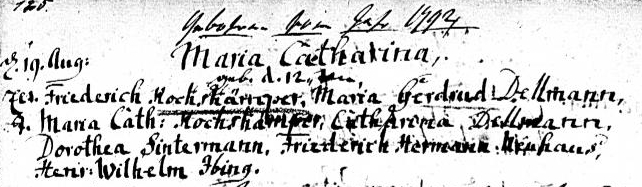 128.
Geboren im Jahr 1792.
d. 19. Aug: Maria Catharina,
geb. d. 12.
Friederich Hockskämper, Maria Gerdrud: Dellmann,
Maria Cath: Hockskämper, Catharina Dellmann,
Dorothea Sintermann, Friederich Hermann Neuhaus,
Henr: Wilhelm Ibing.